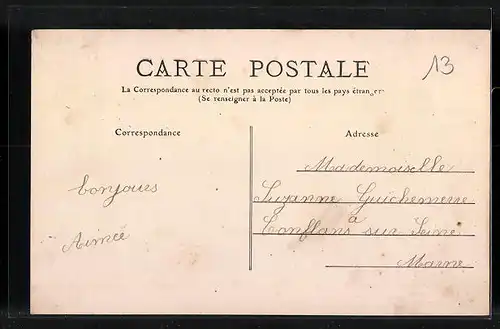 CARTE POSTALE
13
La Correspondance au recto n'est pas acceptée par tous les pays étrangers
(Se renseigner à la Poste)
Correspondance
Adresse
bonjours
Aimée
Mademoiselle
Suzanne Guichemerre
à
Conflans sur Seine
Marne